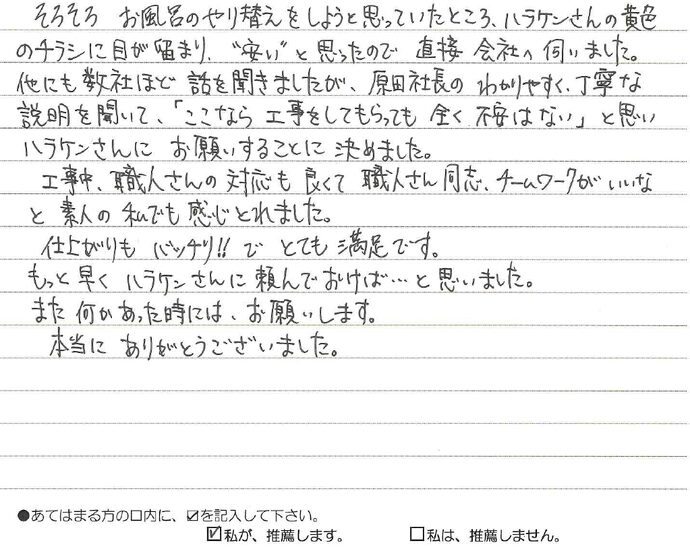 そろそろ お風呂のやり替えをしようと思っていたところ、ハラケンさんの黄色
のチラシに目が留まり、"安い"と思ったので 直接 会社へ 伺いました。
他にも数社ほど 話を聞きましたが、原田社長の わかりやすく、丁寧な
説明を聞いて、「ここなら 工事をしてもらっても 全く 不安はない」と思い
ハラケンさんに お願いすることに 決めました。
工事中、職人さんの 対応も 良くて 職人さん同志、チームワークが いいな
と 素人の 私でも 感じとれました。
仕上がりも バッチリ!! で とても 満足です。
もっと 早く ハラケンさんに 頼んでおけば…と 思いました。
また 何かあった時には、お願いします。
本当に ありがとうございました。
●あてはまる方の口内に、☑を記入して下さい。
☑私が、推薦します。 □私は、推薦しません。